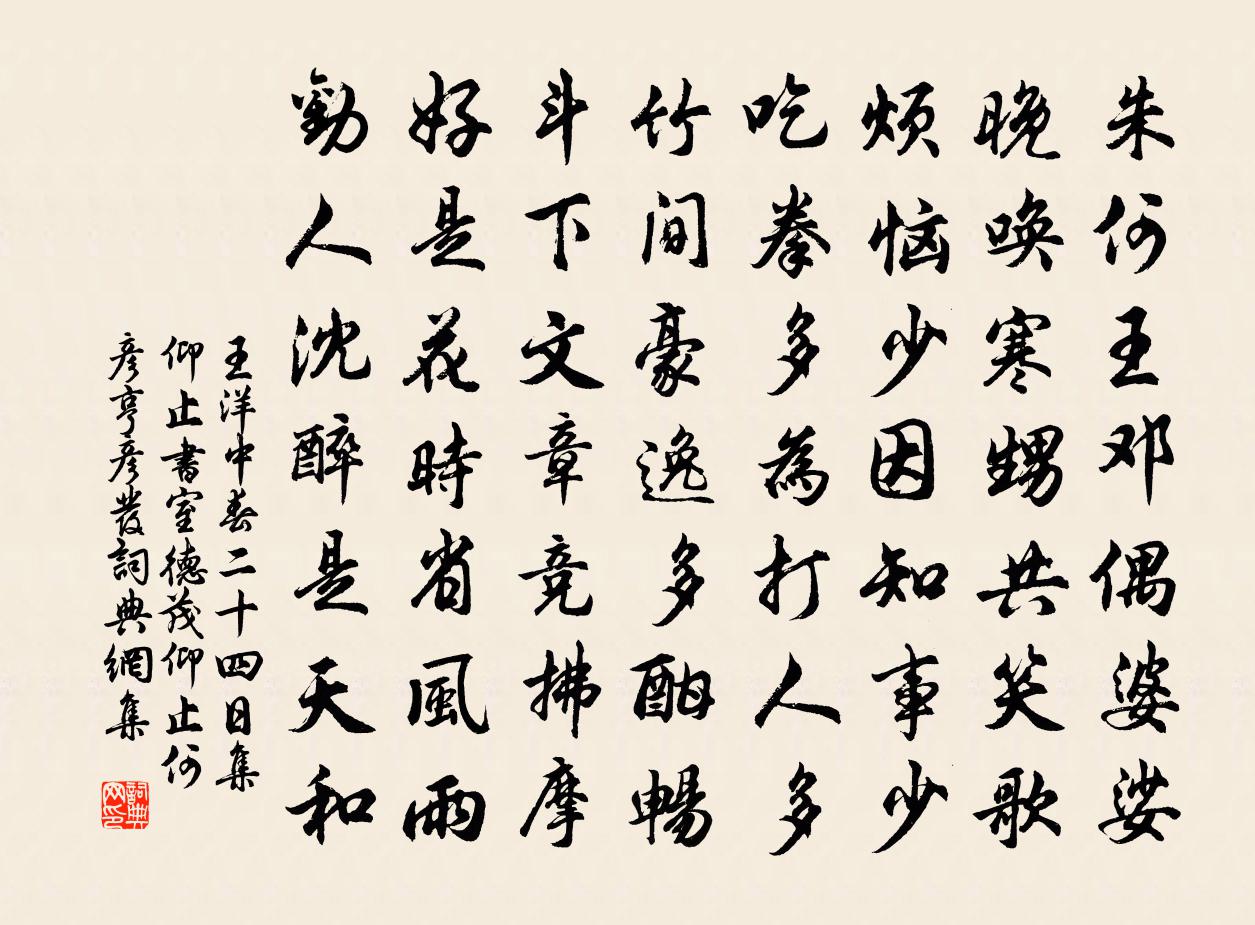 朱何王邓偶婆娑
晚唤寒甥共笑歌
烦恼少因知事少
吃拳多為打人多
竹间豪逸多酣暢
斗下文章竞拂摩
好是花時省風雨
勸人沈醉是天和
王洋中春二十四日集
仰止書室德茂仰止何
彦亨彦發詞典網集
詞典网印